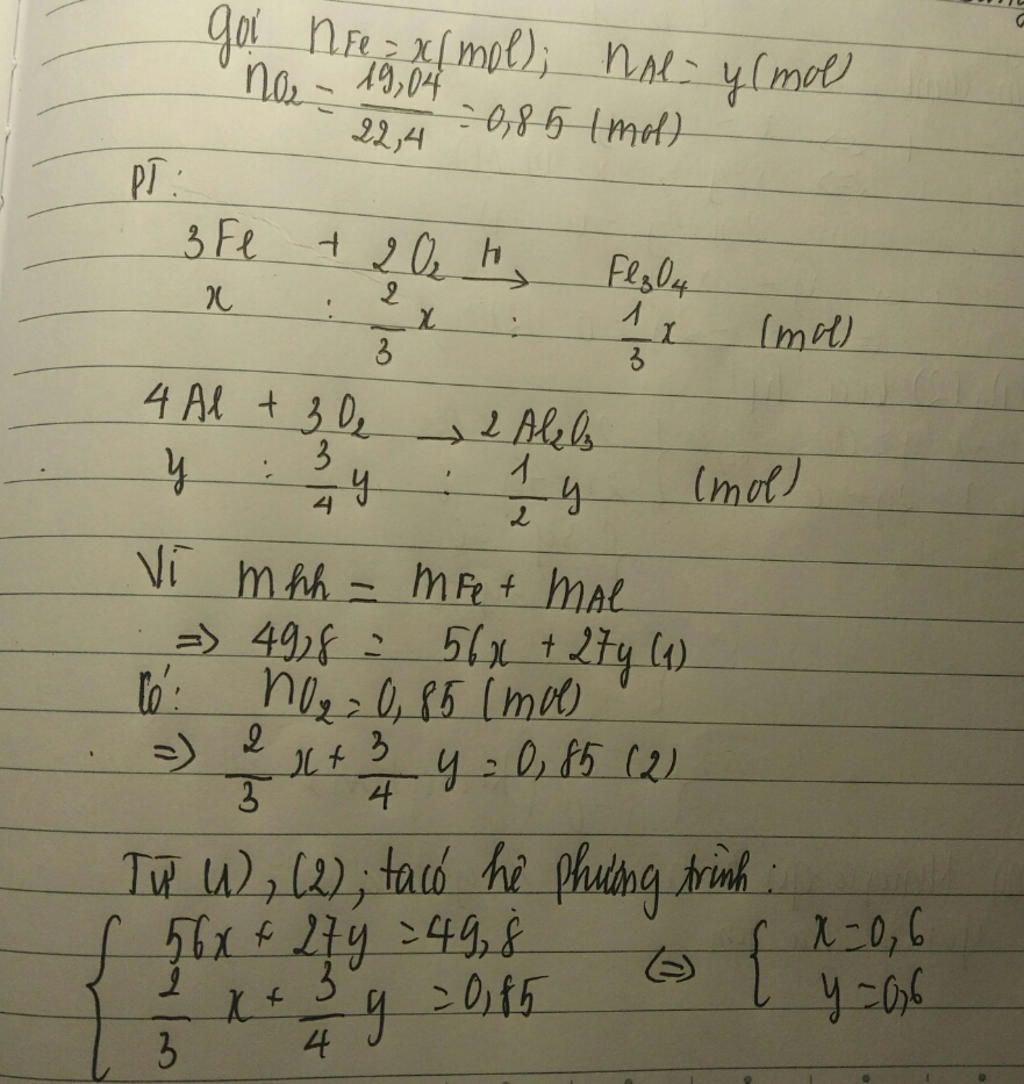 gọi nFe = x(mol); nAl = y(mol)
nO₂ = 19,04/22,4 = 0,85 (mol)
PT:
3Fe + 2O₂ →(t₀) Fe₃O₄
x : 2/3 x : 1/3 x (mol)
4Al + 3O₂ → 2Al₂O₃
y : 3/4 y : 1/2 y (mol)
Vì mhh = mFe + mAl
=> 49,8 = 56x + 27y (1)
Có: nO₂ = 0,85 (mol)
=> 2/3 x + 3/4 y = 0,85 (2)
Từ (1), (2); ta có hệ phương trình:
{ 56x + 27y = 49,8 (=) { x = 0,6
2/3 x + 3/4 y = 0,85 y = 0,6